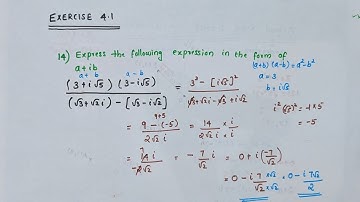 EXERCISE 4.1
14) Express the following expression in the form of
a+ib
(a+b)(a-b) = a²-b²
a = 3
b = i√5
a + b a - b
(3+i√5) (3-i√5) / (√3+√2i) - [√3-i√2] = 3² - [i√5]² / √3+√2i - √3+i√2
i²(√5)² = -1×5
= -5
9+5
= 9-(-5) / 2√2 i = 14 / 2√2 i × i / i
= 14 i / -2√2 = - 7 / √2 i = 0 + i(-7/√2)
= 0 - i 7/√2 ×√2/×√2 = 0 - i 7√2 / 2